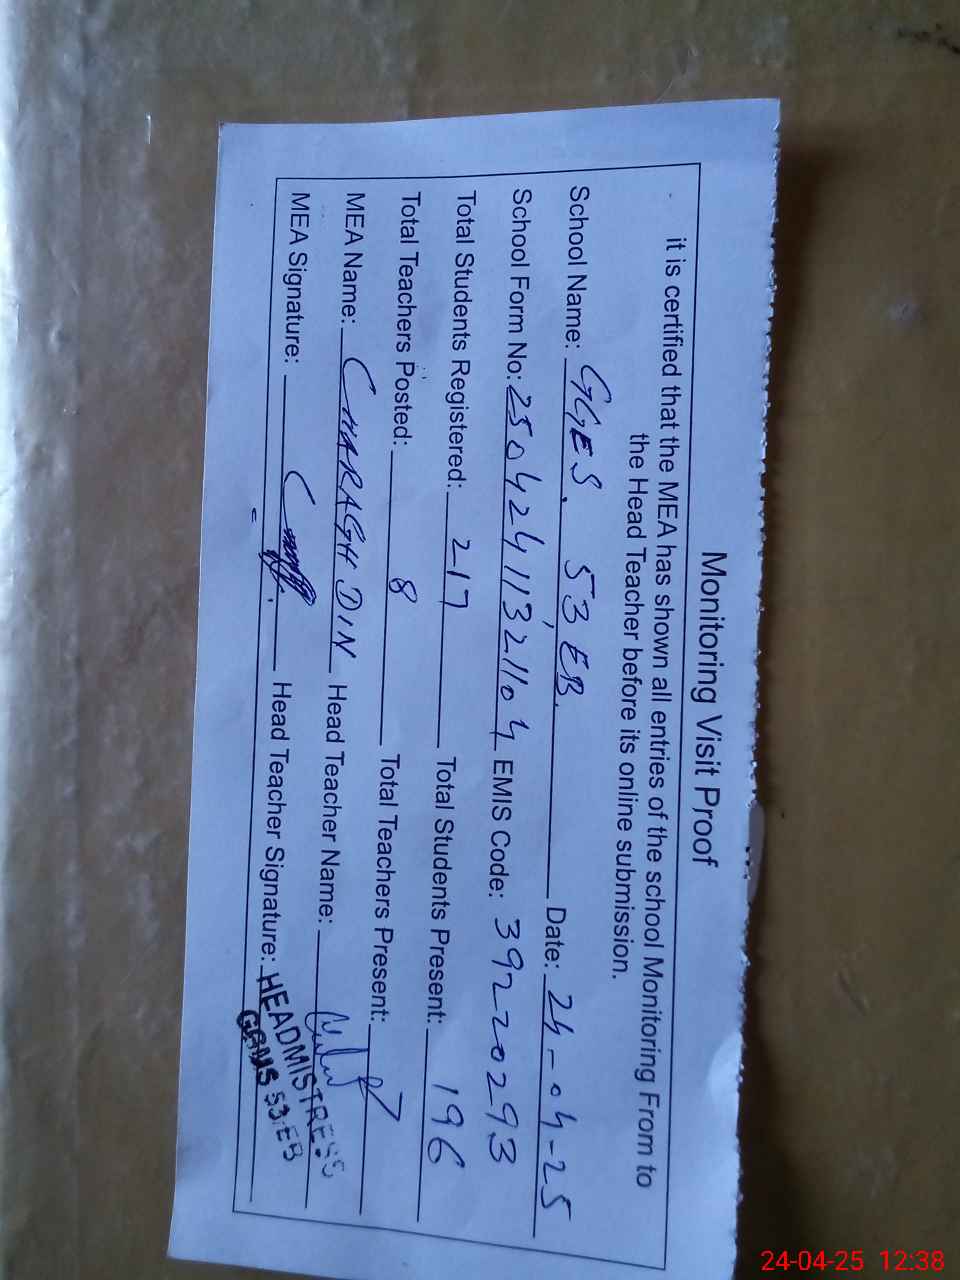 Monitoring Visit Proof
it is certified that the MEA has shown all entries of the school Monitoring From to
the Head Teacher before its online submission.
School Name: GGES. 53, EB. Date: 24-04-25
School Form No: 25042411321104 EMIS Code: 39220293
Total Students Registered: 217 Total Students Present: 196
Total Teachers Posted: 8 Total Teachers Present: 7
MEA Name: CHARAGH DIN Head Teacher Name:
MEA Signature: Head Teacher Signature: HEADMISTRESS
53/EB
24-04-25 12:38